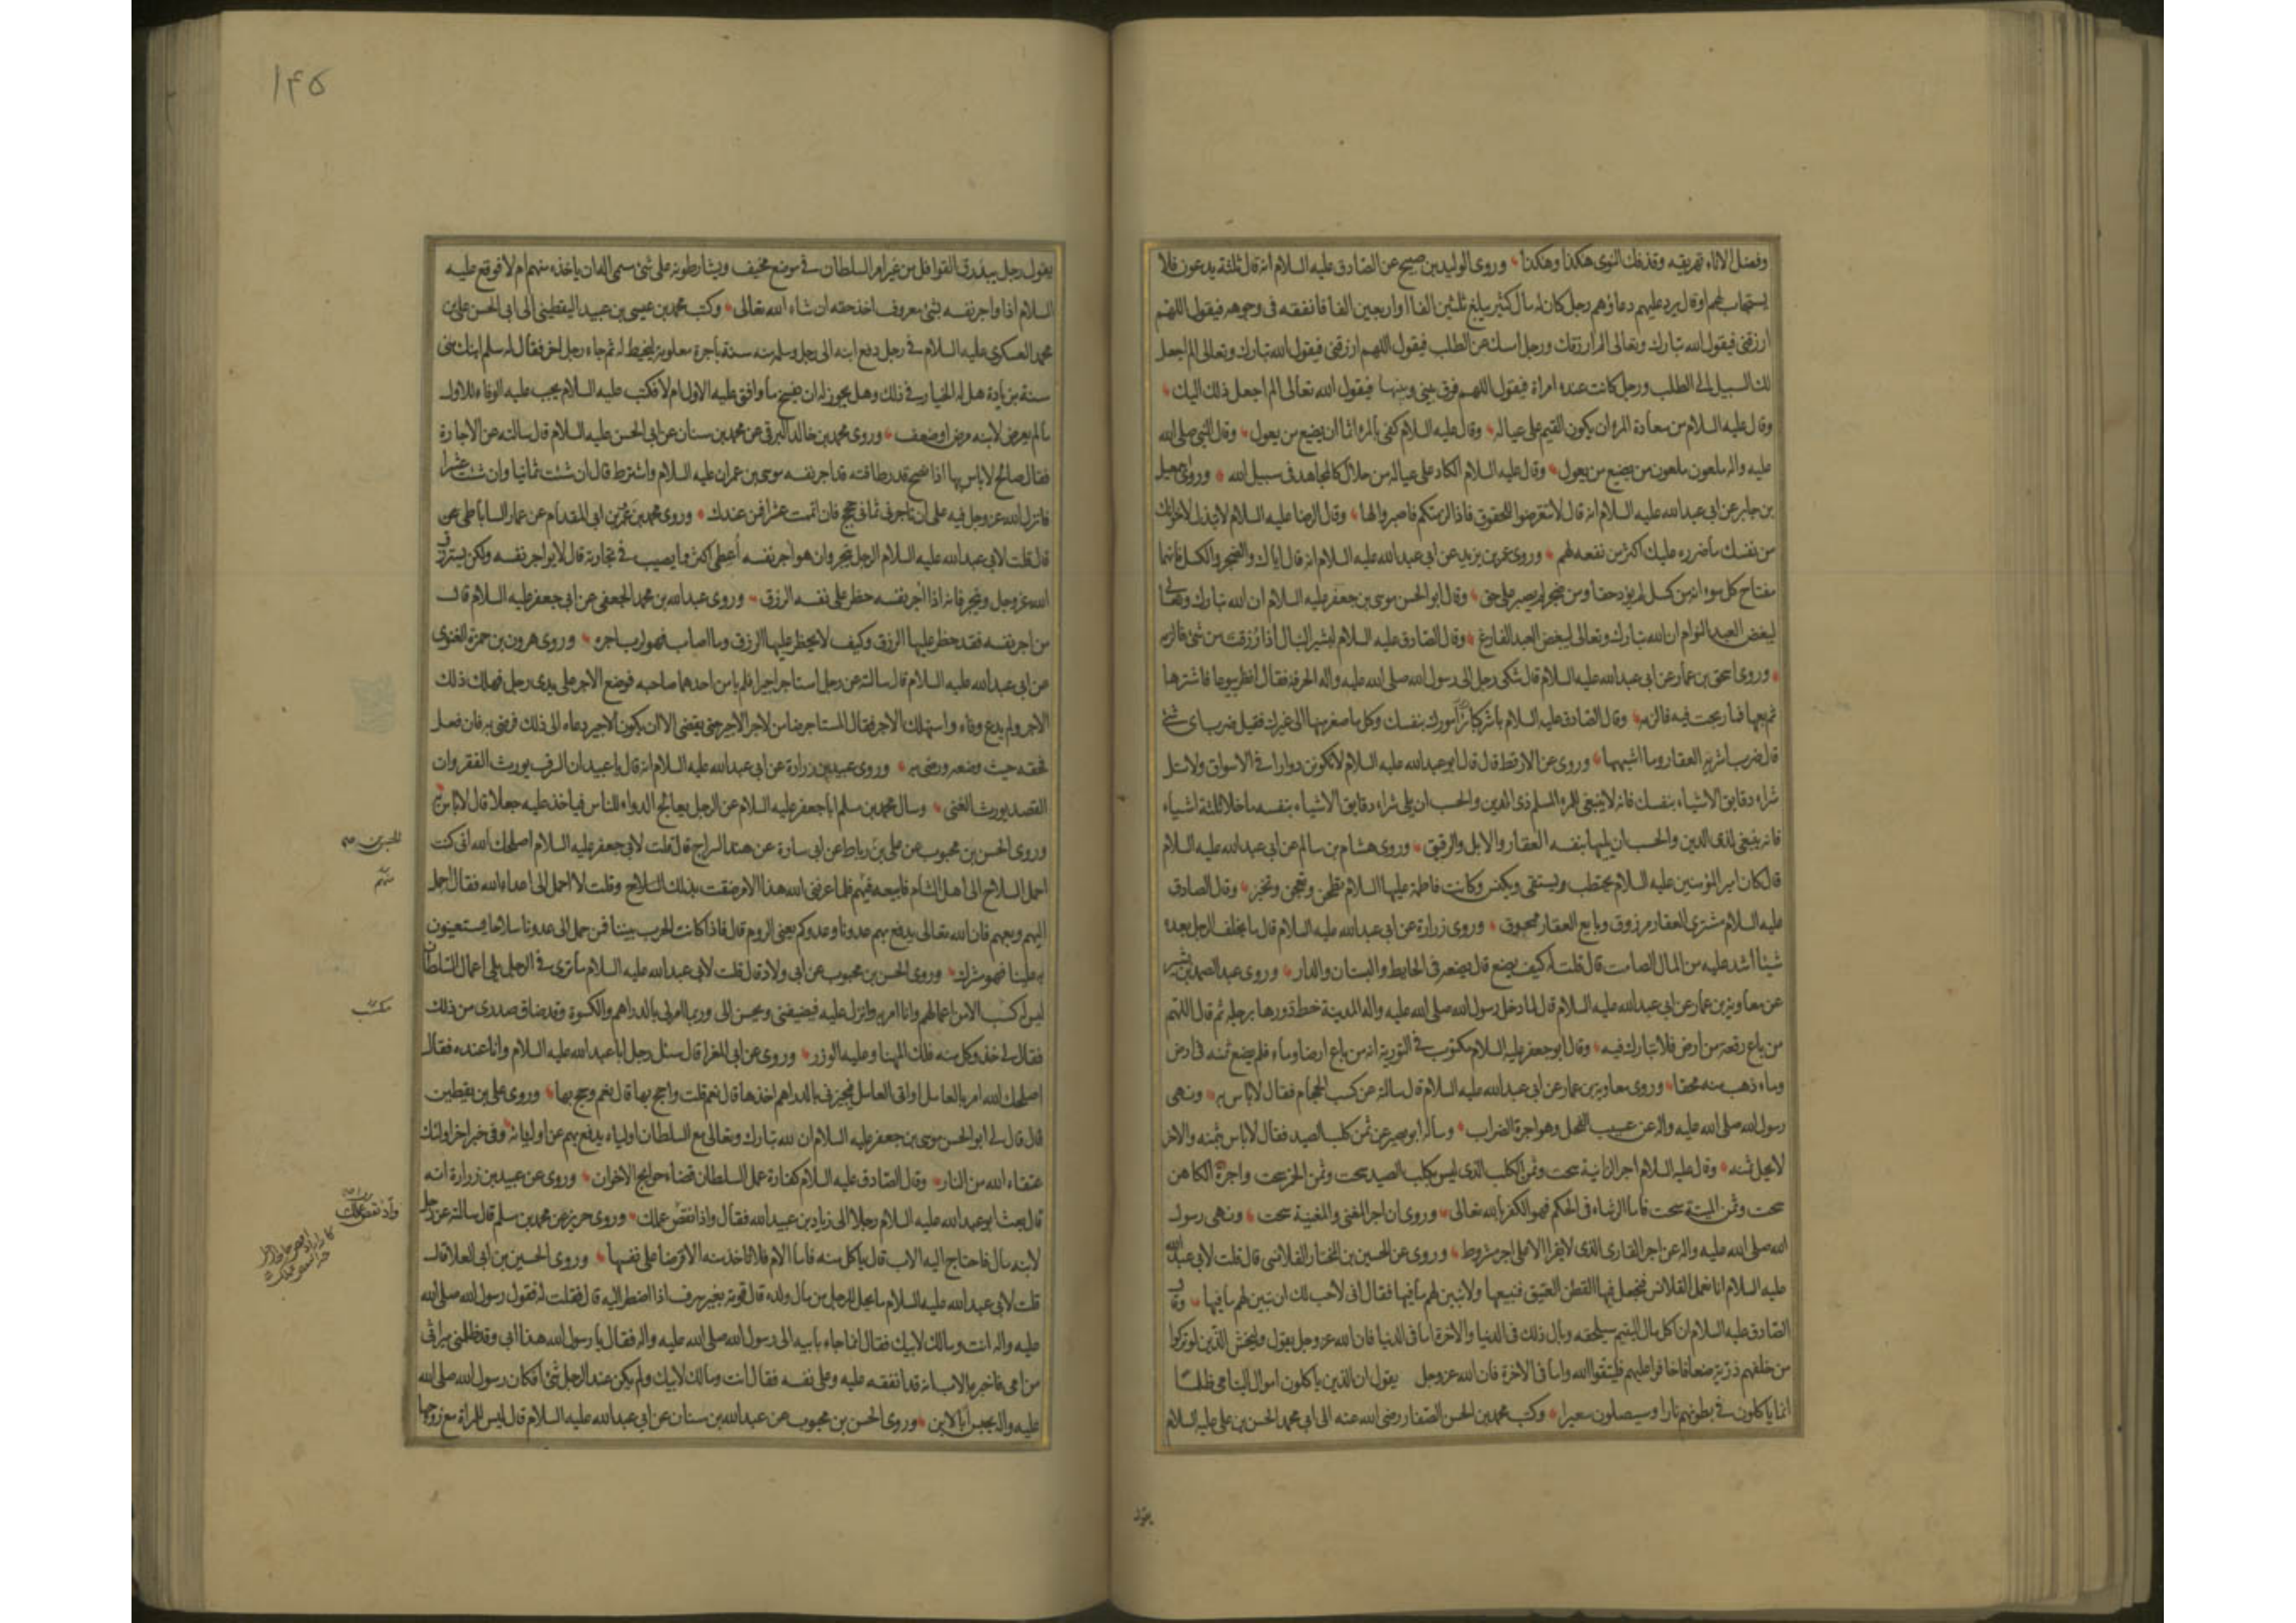 وفضل الاناء تهريقه وقذفك النوى هكذا وهكذا وروى الوليد بن صبيح عن الصادق عليه السلام انه قال ثلثة يدعون فلا
يستجاب لهم او قال يرد عليهم دعاؤهم رجل كان له مال كثير يبلغ ثلثين الفا او اربعين الفا فانفقه فى وجوهه فيقول اللهم
ارزقنى فيقول الله تبارك وتعالى الم ارزقك ورجل امسك عن الطلب فيقول اللهم ارزقنى فيقول الله تبارك وتعالى الم اجعل
لك السبيل الى الطلب ورجل كانت عنده امراة فيقول اللهم فرق بينى وبينها فيقول الله تعالى الم اجعل ذلك اليك
وقال عليه السلام من سعادة المرء ان يكون القيم على عياله وقال عليه السلام كفى بالمرء اثما ان يضيع من يعول وقال النبى صلى الله
عليه واله ملعون ملعون من يضيع من يعول وقال عليه السلام الكاد على عياله من حلال كالمجاهد فى سبيل الله وروى
بن جابر عن ابى عبد الله عليه السلام انه قال لا تتعرضوا للحقوق فاذا لزمتكم فاصبروا لها وقال الرضا عليه السلام لا تبذل لاخوانك
من نفسك ما ضرره عليك اكثر من نفعه لهم وروى عمر بن يزيد عن ابى عبد الله عليه السلام انه قال اياك والضجر والكسل فانهما
مفتاح كل سوء انه من كسل لم يؤد حقا ومن ضجر لم يصبر على حق وقال ابو الحسن موسى بن جعفر عليه السلام ان الله تبارك وتعالى
ليبغض العبد النوام ان الله تبارك وتعالى ليبغض العبد الفارغ وقال الصادق عليه السلام لبشير النبال اذا رزقت من شئ فالزمه
وروى اسحق بن عمار عن ابى عبد الله عليه السلام قال شكى رجل الى رسول الله صلى الله عليه واله الحرفة فقال انظر بيوعا فاشترها
ثم بعها فما ربحت فيه فالزمه وقال الصادق عليه السلام باشر كبار امورك بنفسك وكل ما صغر منها الى غيرك فقيل ضرب اى شئ
قال ضرب اشرية العقار وما اشبهها وروى عن الارقط قال قال ابو عبد الله عليه السلام لا تكونن دوارا فى الاسواق ولا تل
شراء دقايق الاشياء بنفسك فانه لا ينبغى للمرء المسلم ذى الدين والحسب ان يلى شراء دقايق الاشياء بنفسه ما خلا ثلثة اشياء
فانه ينبغى لذى الدين والحسب ان يليها بنفسه العقار والابل والرقيق وروى هشام بن سالم عن ابى عبد الله عليه السلام
قال كان امير المؤمنين عليه السلام يحتطب ويستقى ويكنس وكانت فاطمة عليها السلام تطحن وتعجن وتخبز وقال الصادق
عليه السلام مشترى العقار مرزوق وبايع العقار ممحوق وروى زرارة عن ابى عبد الله عليه السلام قال ما يخلف الرجل بعده
شيئا اشد عليه من المال الصامت قال قلت له كيف يصنع قال يضعه فى الحايط والبستان والدار وروى عبد الصمد بن بشير
عن معاوية بن عمار عن ابى عبد الله عليه السلام قال لما دخل رسول الله صلى الله عليه واله المدينة خط دورها برجله ثم قال اللهم
من باع رقعة من ارض فلا تبارك فيه وقال ابو جعفر عليه السلام مكتوب فى التورية انه من باع ارضا وماء فلم يضع ثمنه فى ارض
وماء ذهب ثمنه محقا وروى معاوية بن عمار عن ابى عبد الله عليه السلام قال سالته عن كسب الحجام فقال لا باس به ونهى
رسول الله صلى الله عليه واله عن عسيب الفحل وهو اجرة الضراب وساله ابو بصير عن ثمن كلب الصيد فقال لا باس بثمنه والاخر
لا يحل ثمنه وقال عليه السلام اجر الزانية سحت وثمن الكلب الذى ليس بكلب الصيد سحت وثمن الخمر سحت واجرة الكاهن
سحت وثمن الميتة سحت فاما الرشاء فى الحكم فهو الكفر بالله تعالى وروى ان اجر المغنى والمغنية سحت ونهى رسول
الله صلى الله عليه واله عن اجر القارى الذى لا يقرا الا على اجر مشروط وروى عن الحسين بن المختار القلانسى قال قلت لابى عبد الله
عليه السلام انا نعمل القلانس فنجعل فيها القطن العتيق فنبيعها ولا نبين لهم ما فيها فقال انى لاحب لك ان تبين لهم ما فيها وقال
الصادق عليه السلام ان اكل مال اليتيم سيلحقه وبال ذلك فى الدنيا والاخرة اما فى الدنيا فان الله عز وجل يقول وليخش الذين لو تركوا
من خلفهم ذرية ضعافا خافوا عليهم فليتقوا الله واما فى الاخرة فان الله عز وجل يقول ان الذين ياكلون اموال اليتامى ظلما
انما ياكلون فى بطونهم نارا وسيصلون سعيرا وكتب محمد بن الحسن الصفار رضى الله عنه الى ابى محمد الحسن بن على عليه السلام
يقول
۱۴۵
يقول رجل يبذرق القوافل من غير امر السلطان فى موضع مخيف ويشارطونه على شئ مسمى اله ان ياخذه منهم ام لا فوقع عليه
السلام اذا واجر نفسه بشئ معروف اخذ حقه ان شاء الله تعالى وكتب محمد بن عيسى بن عبيد اليقطينى الى ابى الحسن على بن
محمد العسكرى عليه السلام فى رجل دفع ابنه الى رجل وسلمه منه سنة باجرة معلومة ليخيط له ثم جاء رجل اخر فقال له سلم ابنك منى
سنة بزيادة هل له الخيار فى ذلك وهل يجوز له ان يفسخ ما وافق عليه الاول ام لا فكتب عليه السلام يجب عليه الوفاء للاول
ما لم يعرض لابنه مرض او ضعف وروى محمد بن خالد البرقى عن محمد بن سنان عن ابى الحسن عليه السلام قال سالته عن الاجارة
فقال صالح لا باس بها اذا نصح قدر طاقته قد اجر نفسه موسى بن عمران عليه السلام واشترط قال ان شئت ثمانيا وان شئت عشرا
فانزل الله عز وجل فيه على ان تاجرنى ثمانى حجج فان اتممت عشرا فمن عندك وروى محمد بن عمرو بن ابى المقدام عن عمار الساباطى عن
قال قلت لابى عبد الله عليه السلام الرجل يتجر وان هو اجر نفسه اعطى اكثر مما يصيب فى تجارته قال لا يواجر نفسه ولكن يسترزق
الله عز وجل ويتجر فانه اذا اجر نفسه حظر على نفسه الرزق وروى عبد الله بن محمد الجعفى عن ابى جعفر عليه السلام قال
من اجر نفسه فقد حظر عليها الرزق وكيف لا يحظر عليها الرزق وما اصاب فهو لرب اجره وروى هرون بن حمزة الغنوى
عن ابى عبد الله عليه السلام قال سالته عن رجل استاجر اجيرا فلم يامن احدهما صاحبه فوضع الاجر على يدى رجل فهلك ذلك
الاجر ولم يدع وفاء واستهلك الاجر فقال المستاجر ضامن لاجر الاجير حتى يقضى الا ان يكون الاجير دعاه الى ذلك فرضى به فان فعل
فحقه حيث وضعه ورضى به وروى عبيد بن زرارة عن ابى عبد الله عليه السلام انه قال يا عبيد ان السرف يورث الفقر وان
القصد يورث الغنى وسال محمد بن مسلم ابا جعفر عليه السلام عن الرجل يعالج الدواء للناس فياخذ عليه جعلا قال لا باس به
وروى الحسن بن محبوب عن على بن رباط عن ابى سارة عن هند السراج قال قلت لابى جعفر عليه السلام اصلحك الله انى كنت
احمل السلاح الى اهل الشام فابيعه فيهم فلما عرفنى الله هذا الامر ضقت بذلك السلاح وقلت لا احمل الى اعداء الله فقال احمل
اليهم وبعهم فان الله تعالى يدفع بهم عدونا وعدوكم يعنى الروم قال فاذا كانت الحرب بيننا فمن حمل الى عدونا سلاحا يستعينون
به علينا فهو مشرك وروى الحسن بن محبوب عن ابى ولاد قال قلت لابى عبد الله عليه السلام ما ترى فى الرجل يلى اعمال السلطان
ليس له كسب الا من اعمالهم وانا امر به وانزل عليه فيضيفنى ويحسن الى وربما امر لى بالدراهم والكسوة وقد ضاق صدرى من ذلك
فقال لى خذ وكل منه فلك المهنا وعليه الوزر وروى عن ابى المغرا قال سئل رجل ابا عبد الله عليه السلام وانا عنده فقال
اصلحك الله امر بالعامل او اتى العامل فيجيزنى بالدراهم اخذها قال نعم قلت واحج بها قال نعم وحج بها وروى على بن يقطين
قال قال لى ابو الحسن موسى بن جعفر عليه السلام ان لله تبارك وتعالى مع السلطان اولياء يدفع بهم عن اوليائه وفى خبر اخر اولئك
عتقاء الله من النار وقال الصادق عليه السلام كفارة عمل السلطان قضاء حوايج الاخوان وروى عن عبيد بن زرارة انه
قال بعث ابو عبد الله عليه السلام رجلا الى زياد بن عبيد الله فقال واذا نقص عملك وروى حريز عن محمد بن مسلم قال سالته عن رجل
لابنه مال فاحتاج اليه الاب قال ياكل منه فاما الام فلا تاخذ منه الا قرضا على نفسها وروى الحسين بن ابى العلا قال
قلت لابى عبد الله عليه السلام ما يحل للرجل من مال ولده قال قوته بغير سرف اذا اضطر اليه قال فقلت له فقول رسول الله صلى الله
عليه واله انت ومالك لابيك فقال انما جاء بابيه الى رسول الله صلى الله عليه واله فقال يا رسول الله هذا ابى وقد ظلمنى ميراثى
من امى فاخبره الاب انه قد انفقه عليه وعلى نفسه فقال انت ومالك لابيك ولم يكن عند الرجل شئ افكان رسول الله صلى الله
عليه واله يحبس ابا لابن وروى الحسن بن محبوب عن عبد الله بن سنان عن ابى عبد الله عليه السلام قال ليس للمراة مع زوجها
منهم
مكسب